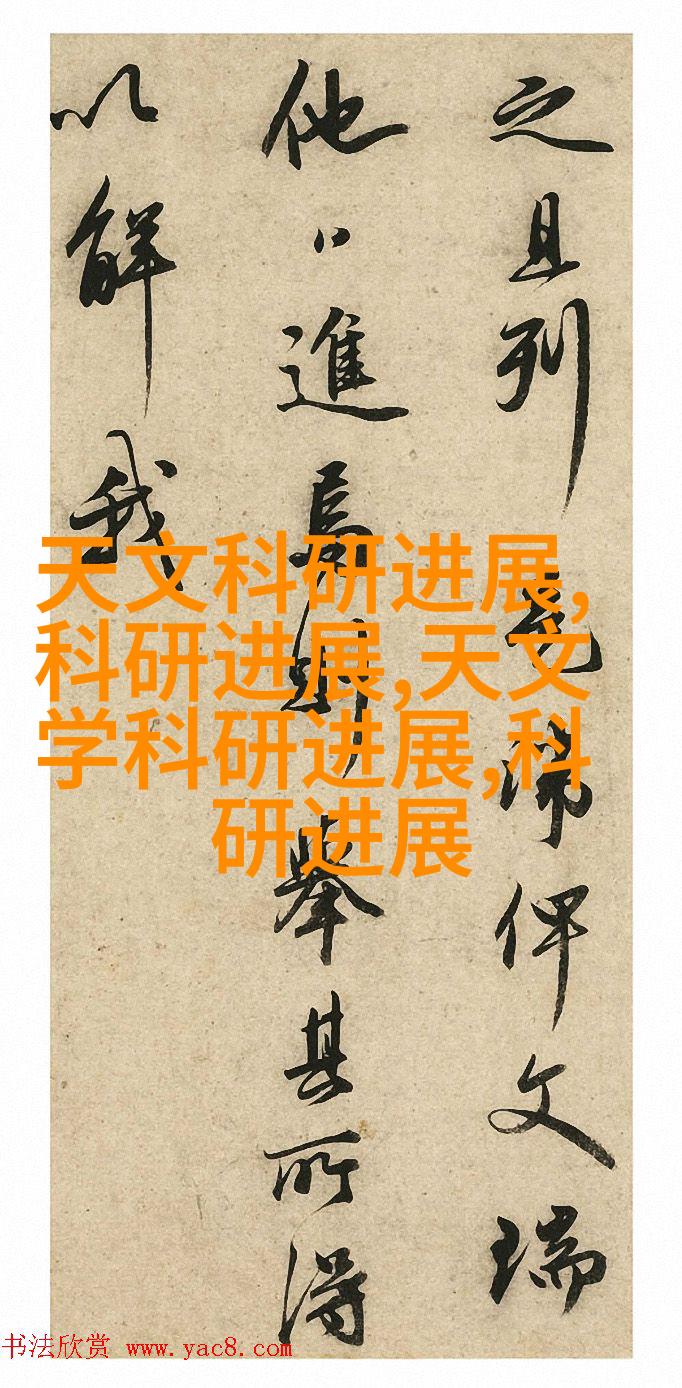 之且列卷端俾文瑞
他日進焉則舉其所得
以解我
天文科研进展,
科研进展,天文
学科研进展,科
研进展
书法欣赏 www.yac8.com